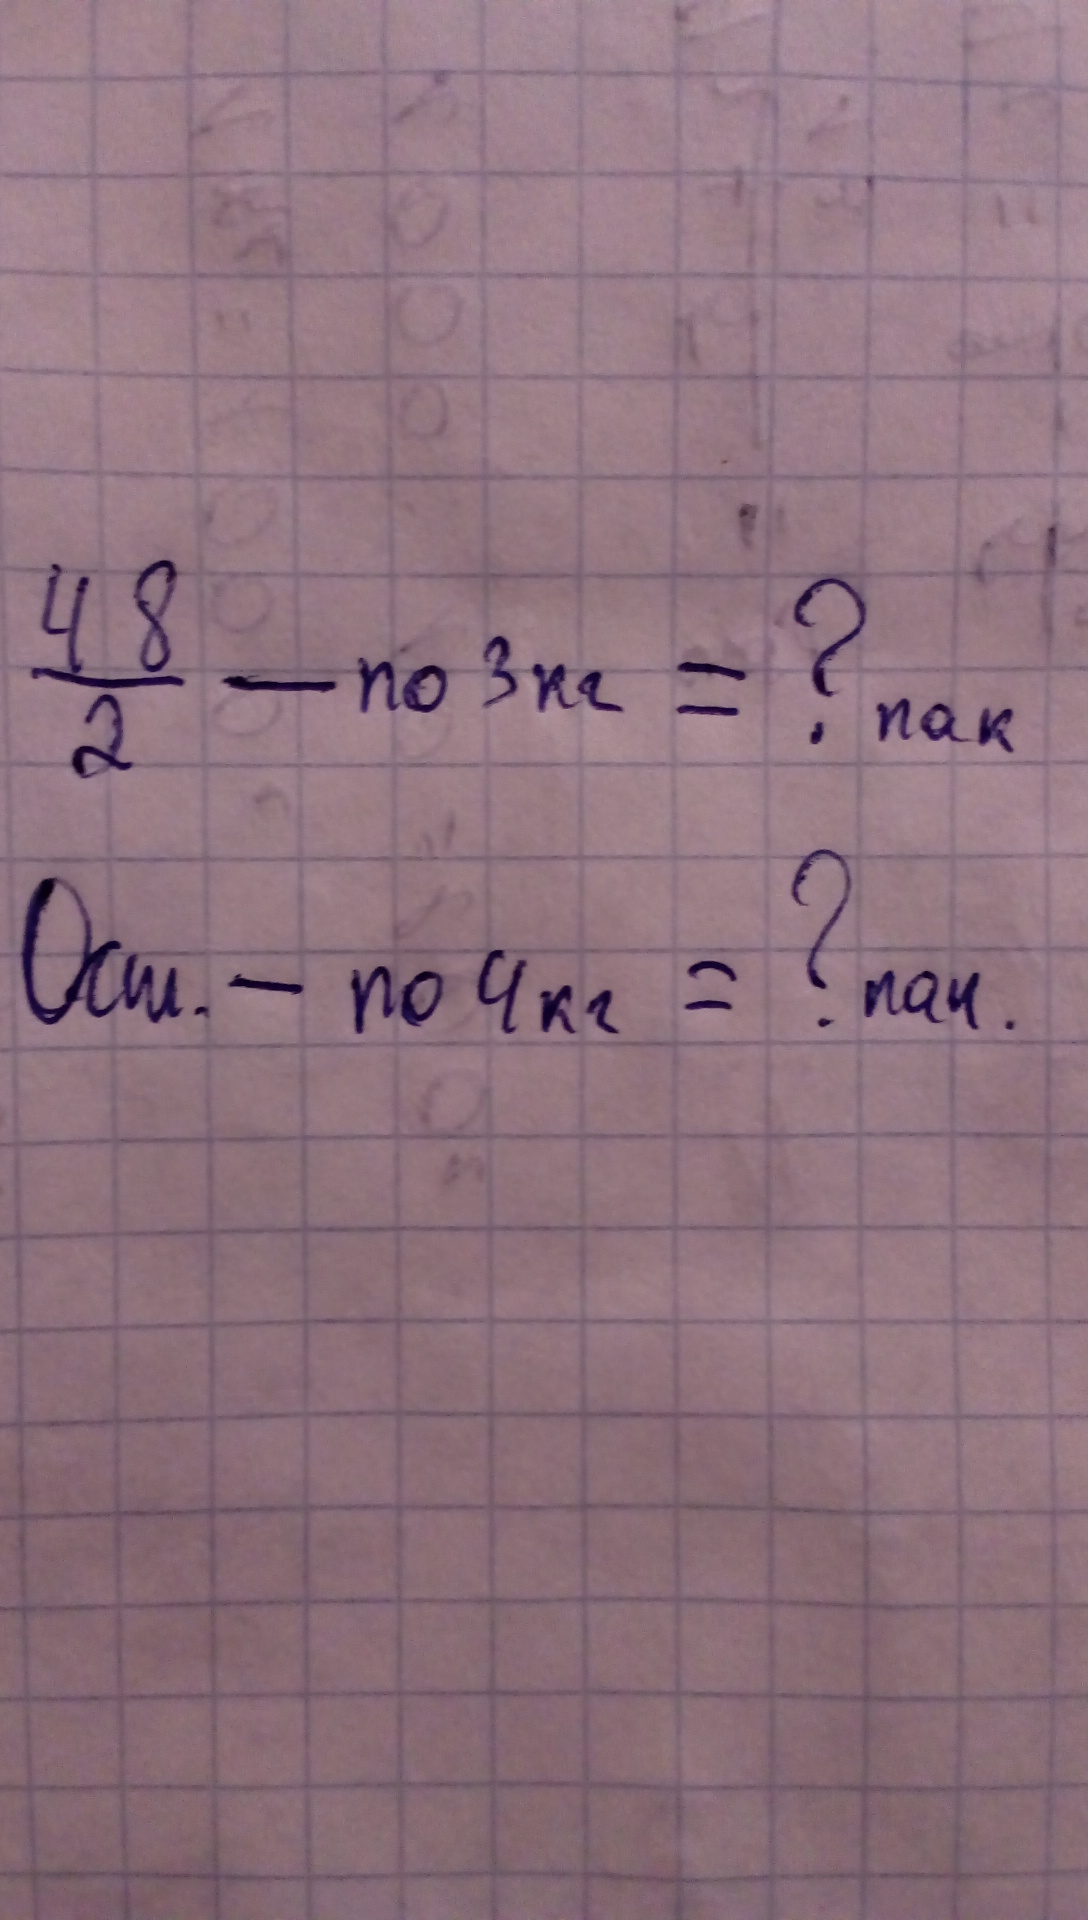 48/2 — по 3 кг = ? пак
Ост. — по 4 кг = ? пак.